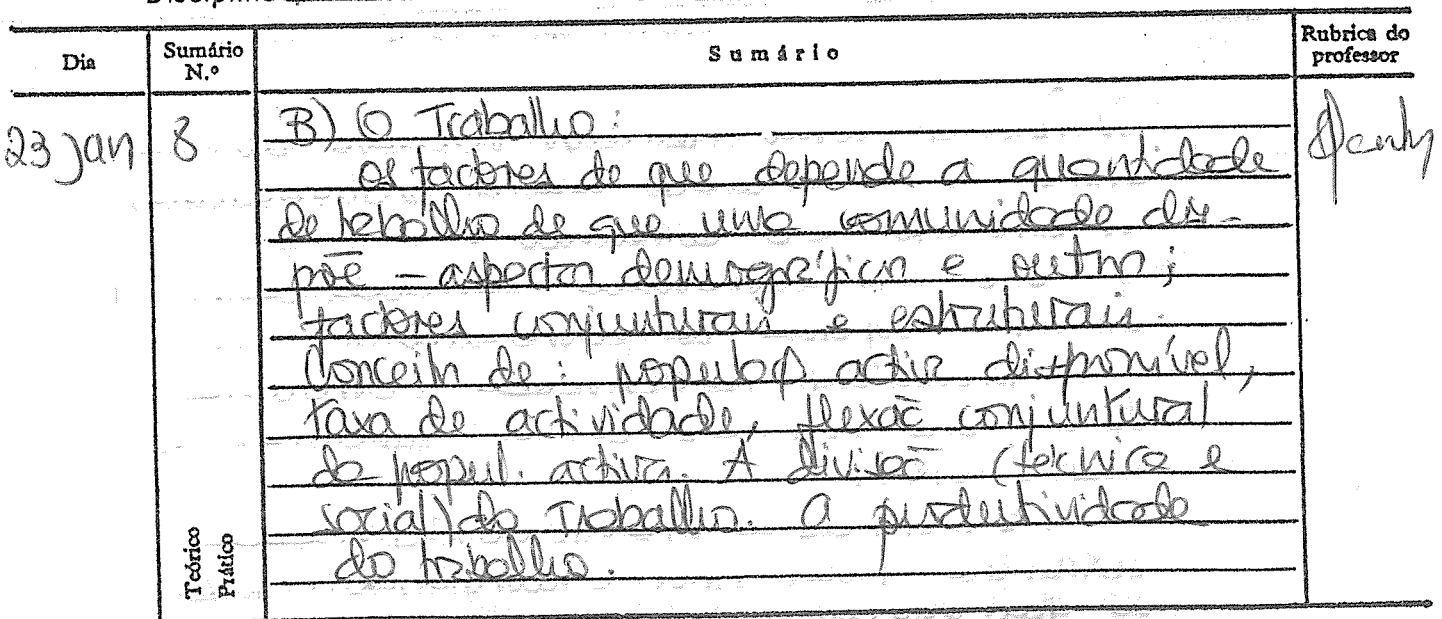 Dia
Sumário
N.º
Sumário
Rubrica do
professor
23 Jan
8
B) O Trabalho:
os factores de que depende a quantidade
de trabalho de que uma comunidade dis-
põe - aspectos demográficos e outros;
factores conjunturais e estruturais.
Conceito de: populaç activa disponível,
taxa de actividade, flexão conjuntural
da popul. activa. A divisão (técnica e
social) do Trabalho. A produtividade
do trabalho.
Teórico
Prático